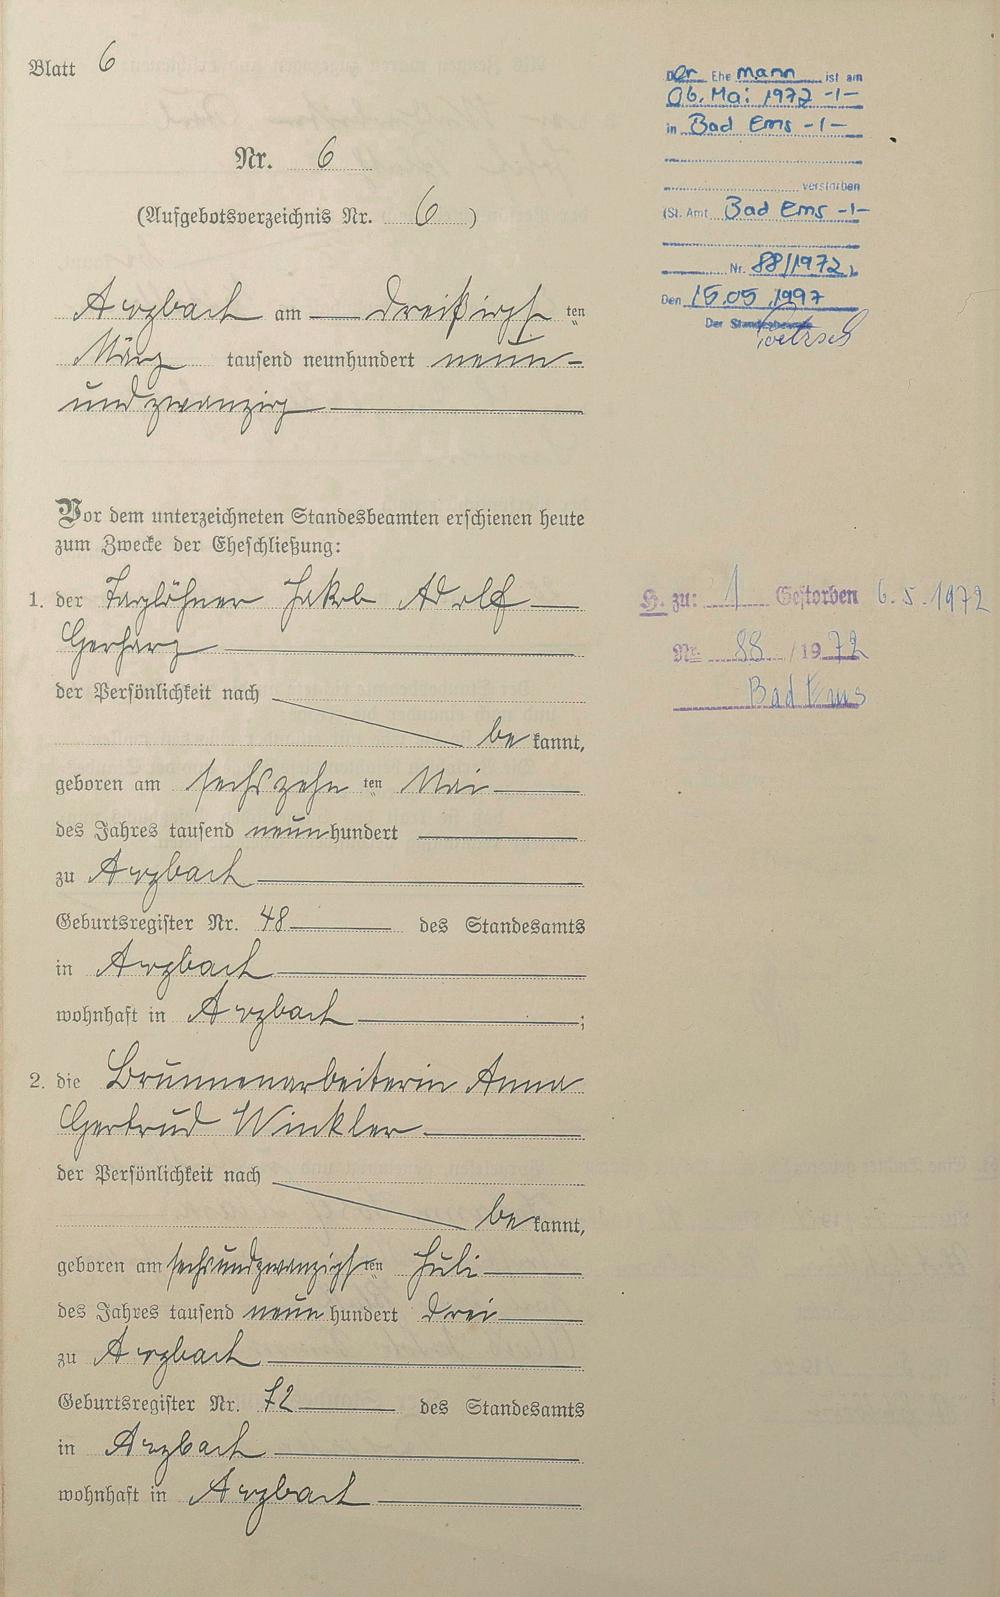 Blatt 6
Nr. 6
(Aufgebotsverzeichnis Nr. 6)
Arzbach am dreißigsten
März tausend neunhundert neun-
undzwanzig
Vor dem unterzeichneten Standesbeamten erschienen heute
zum Zwecke der Eheschließung:
1. der Taglöhner Jakob Adolf
Gerharz
der Persönlichkeit nach
bekannt,
geboren am sechszehnten Mai
des Jahres tausend neunhundert
zu Arzbach
Geburtsregister Nr. 48 des Standesamts
in Arzbach
wohnhaft in Arzbach;
2. die Brunnenarbeiterin Anna
Gertrud Winkler
der Persönlichkeit nach
bekannt,
geboren am sechsundzwanzigsten Juli
des Jahres tausend neunhundert drei
zu Arzbach
Geburtsregister Nr. 72 des Standesamts
in Arzbach
wohnhaft in Arzbach
Der Ehemann ist am
06. Mai 1972 -1-
in Bad Ems -1-
verstorben
(St. Amt Bad Ems -1-
Nr. 88/1972)
Den 15.05.1997
Der Standesbeamte
H. zu: 1 Gestorben 6.5.1972
Nr. 88 / 1972
Bad Ems